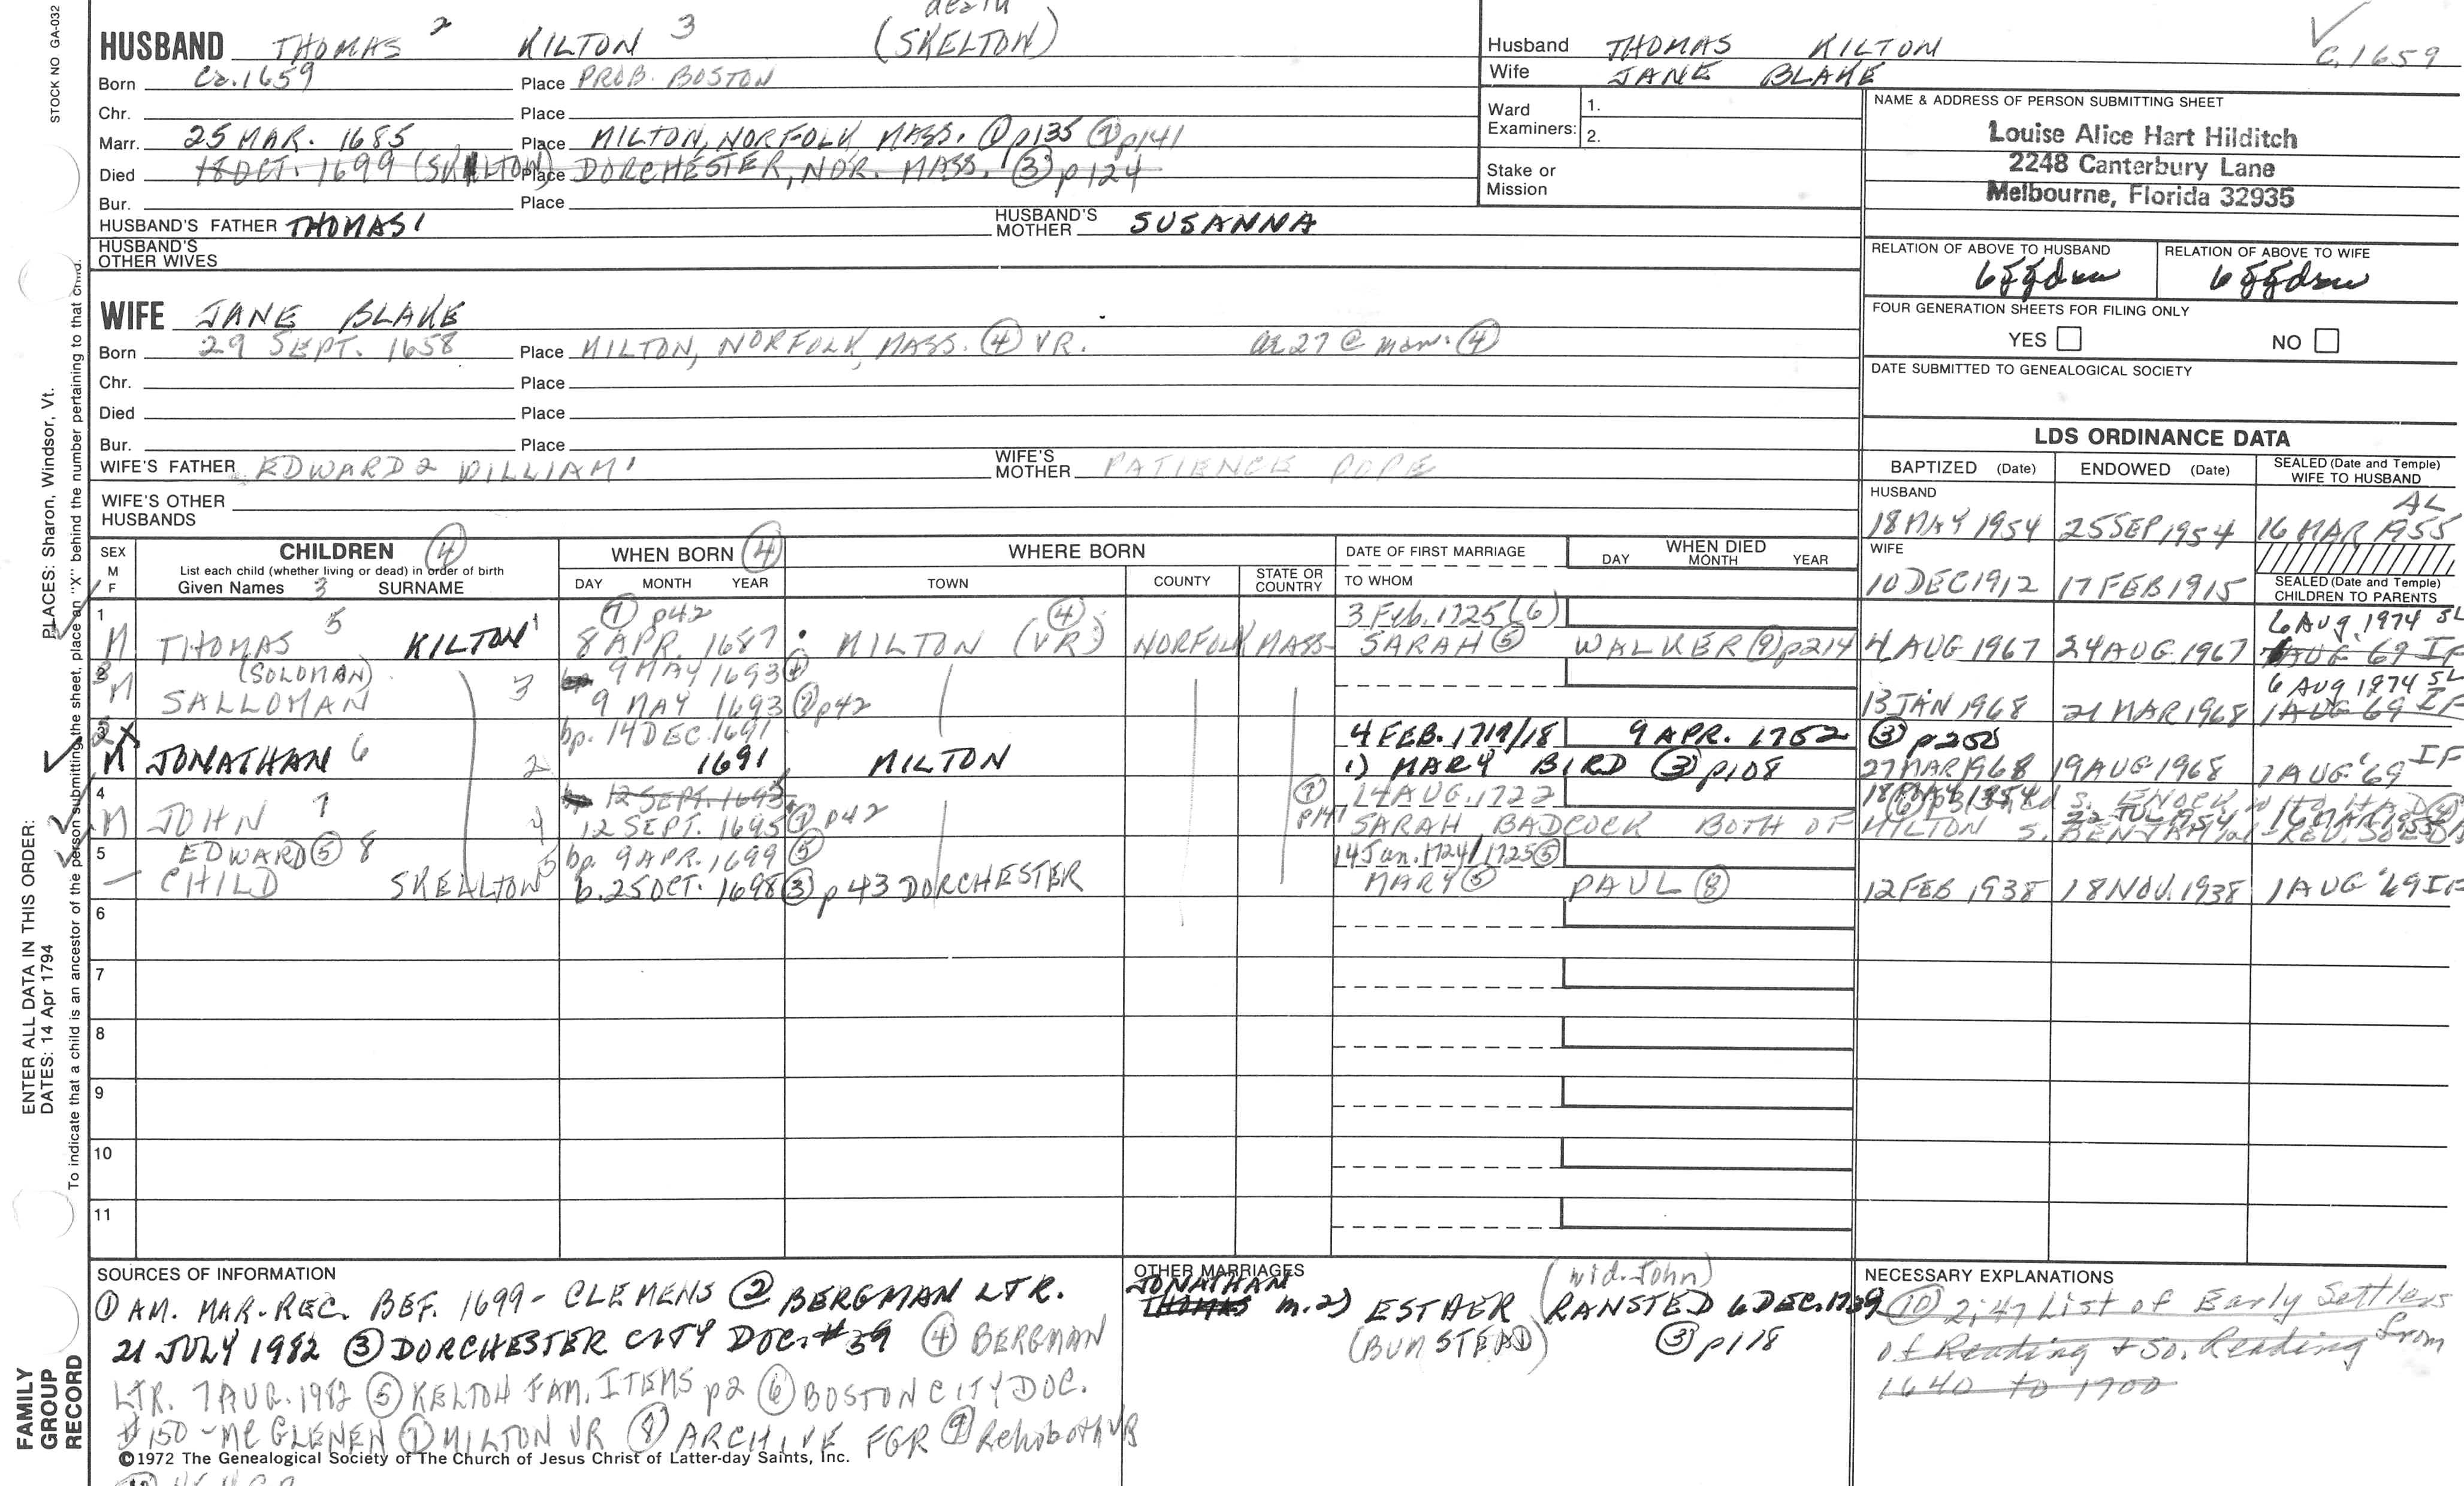 STOCK NO GA-032
death
HUSBAND THOMAS 2 KILTON 3 (SKELTON)
Born Ca. 1659 Place PROB. BOSTON
Chr. Place
Marr. 25 MAR. 1685 Place MILTON, NORFOLK, MASS. ① p135 ⑦ p141
Died 18 OCT. 1699 (SKELTON) Place DORCHESTER, NOR. MASS. ③ p124
Bur. Place
HUSBAND'S FATHER THOMAS 1 HUSBAND'S MOTHER SUSANNA
HUSBAND'S OTHER WIVES
WIFE JANE BLAKE
Born 29 SEPT. 1658 Place MILTON, NORFOLK, MASS. ④ VR. ae 27 @ mar. ④
Chr. Place
Died Place
Bur. Place
WIFE'S FATHER EDWARD 2 WILLIAM 1 WIFE'S MOTHER PATIENCE POPE
WIFE'S OTHER HUSBANDS
Husband THOMAS KILTON C. 1659
Wife JANE BLAKE
Ward Examiners: 1.
2.
Stake or Mission
NAME & ADDRESS OF PERSON SUBMITTING SHEET
Louise Alice Hart Hilditch
2248 Canterbury Lane
Melbourne, Florida 32935
RELATION OF ABOVE TO HUSBAND RELATION OF ABOVE TO WIFE
FOUR GENERATION SHEETS FOR FILING ONLY
YES NO
DATE SUBMITTED TO GENEALOGICAL SOCIETY
LDS ORDINANCE DATA
BAPTIZED (Date) ENDOWED (Date) SEALED (Date and Temple) WIFE TO HUSBAND
HUSBAND AL
18 MAY 1954 25 SEP 1954 16 MAR 1955
WIFE
10 DEC 1912 17 FEB 1915
SEALED (Date and Temple) CHILDREN TO PARENTS
SEX M F CHILDREN ④ WHEN BORN ④ WHERE BORN DATE OF FIRST MARRIAGE WHEN DIED
List each child (whether living or dead) in order of birth
Given Names 3 SURNAME DAY MONTH YEAR TOWN COUNTY STATE OR COUNTRY TO WHOM DAY MONTH YEAR
1 ⑦ p42 ④ 3 Feb. 1725 (6) 6 Aug. 1974 SL
M THOMAS 5 KILTON 1 8 APR. 1687 MILTON (VR) NORFOLK MASS. SARAH ⑤ WALKER ⑨ p214 4 AUG 1967 24 AUG. 1967 1 AUG 69 IF
(SOLOMAN) 9 MAY 1693 ④ 6 AUG 1974 SL
M SALLOMAN 3 9 MAY 1693 ⑦ p42 13 JAN 1968 21 MAR 1968 1 AUG 69 IF
X bp. 14 DEC. 1691 4 FEB. 1717/18 9 APR. 1752 ③ p250
M JONATHAN 6 2 1691 MILTON 1) MARY BIRD ③ p108 27 MAR 1968 19 AUG 1968 1 AUG '69 IF
4 bp 12 SEPT. 1695 ⑦ 14 AUG. 1722
M JOHN 7 4 12 SEPT. 1695 ⑦ p42 p141 SARAH BADCOCK BOTH OF MILTON
5 EDWARD ⑤ 8 bp. 9 APR. 1699 ⑤ 14 Jan. 1724/1725 ⑤
CHILD SKELLTON 5 b. 25 OCT. 1698 ③ p43 DORCHESTER MARY ⑤ PAUL ⑧ 12 FEB 1938 18 NOV. 1938 1 AUG '69 IF
6
7
8
9
10
11
SOURCES OF INFORMATION
① AM. MAR. REC. BEF. 1699 - CLEMENS ② BERGMAN LTR.
21 JULY 1982 ③ DORCHESTER CITY DOC. #39 ④ BERGMAN
LTR. 7 AUG. 1982 ⑤ KELTON FAM. ITEMS p2 ⑥ BOSTON CITY DOC.
#150 - MC GLENEN ⑦ MILTON VR ⑧ ARCHIVE FGR ⑨ Rehoboth VR
©1972 The Genealogical Society of The Church of Jesus Christ of Latter-day Saints, Inc.
OTHER MARRIAGES
JONATHAN (wid. John)
THOMAS m. 2) ESTHER RANSTED 6 DEC. 1739
(BUMSTEAD) ③ p118
NECESSARY EXPLANATIONS
⑩ 2:47 List of Early Settlers
of Reading + So. Reading from
1640 to 1700
PLACES: Sharon, Windsor, Vt.
ENTER ALL DATA IN THIS ORDER:
DATES: 14 Apr 1794
To indicate that a child is an ancestor of the person submitting the sheet, place an "X" behind the number pertaining to that child.
FAMILY GROUP RECORD